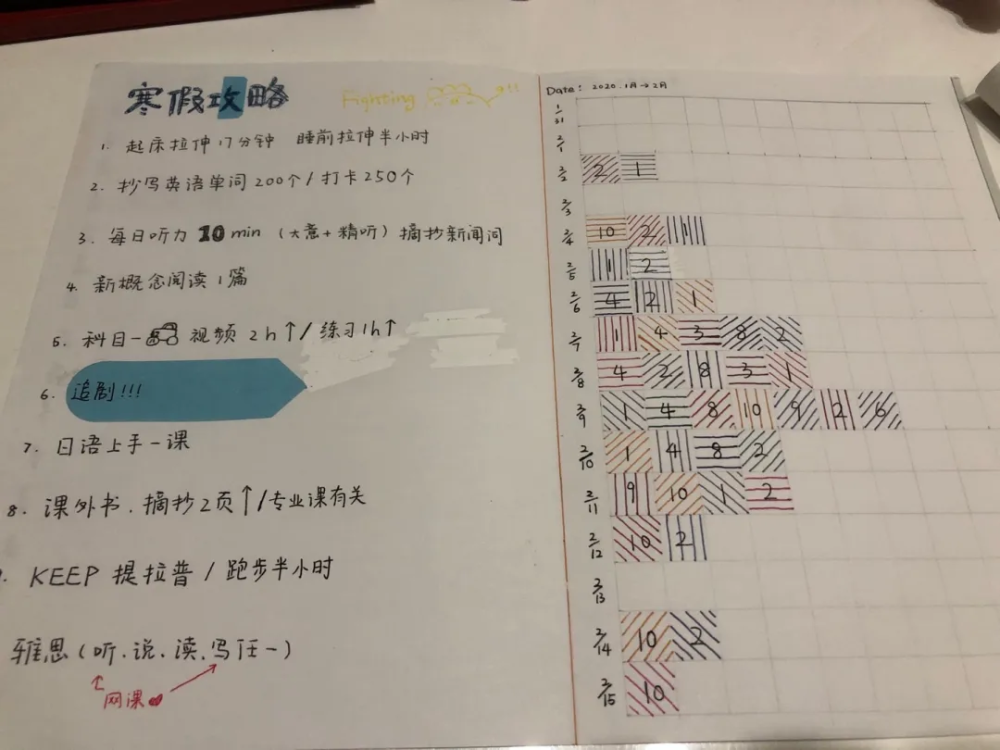 寒假攻略 Fighting
1. 起床拉伸17分钟 睡前拉伸半小时
2. 抄写英语单词200个/打卡250个
3. 每日听力 10 min (大意+精听) 摘抄新闻词
4. 新概念阅读1篇
5. 科目一 视频 2h↑/练习1h↑
6. 追剧!!!
7. 日语上手一课
8. 课外书.摘抄2页↑/专业课有关
KEEP 提拉普/跑步半小时
雅思(听.说.读.写任一)
↑网课
Date: 2020.1月→2月
1/31
2/1
2/2 2 1
2/3
2/4 10 2 1
2/5 1 2
2/6 4 2 1
2/7 1 4 3 8 2
2/8 4 2 8 3 1
2/9 1 4 8 10 9 2 6
2/10 1 4 8 2
2/11 9 10 1 2
2/12 10 2
2/13
2/14 10 2
2/15 10